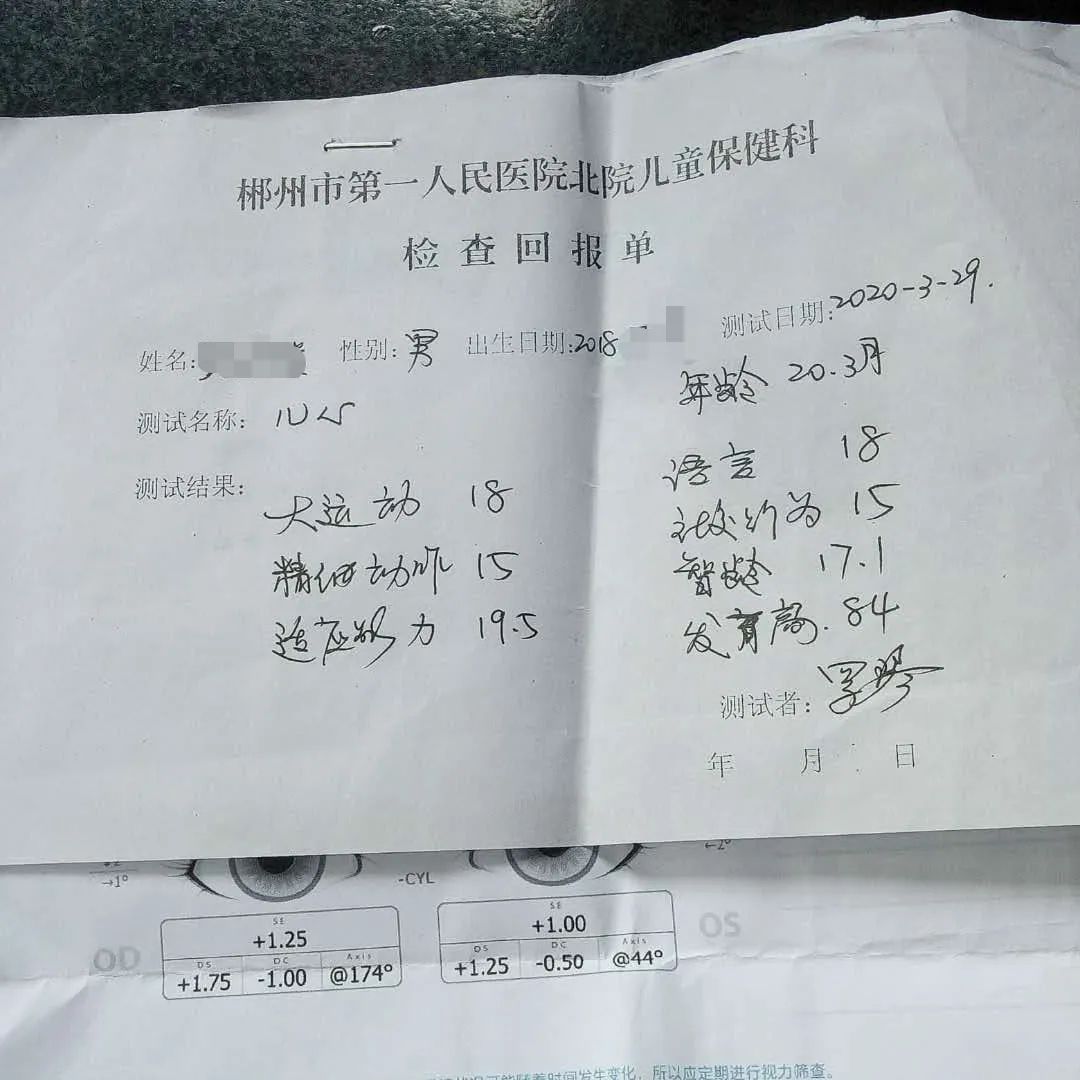 郴州市第一人民医院北院儿童保健科
检查回报单
姓名: 性别: 男 出生日期: 2018 测试日期: 2020-3-29.
年龄 20.3月
测试名称: 儿心
测试结果:
大运动 18 语言 18
精细动作 15 社交行为 15
适应能力 19.5 智龄 17.1
发育商. 84
测试者:
年 月 日
→1° -CYL ←2°
OD OS
SE +1.25 SE +1.00
DS +1.75 DC -1.00 Axis @174° DS +1.25 DC -0.50 Axis @44°
可能随着时间发生变化，所以应定期进行视力筛查。